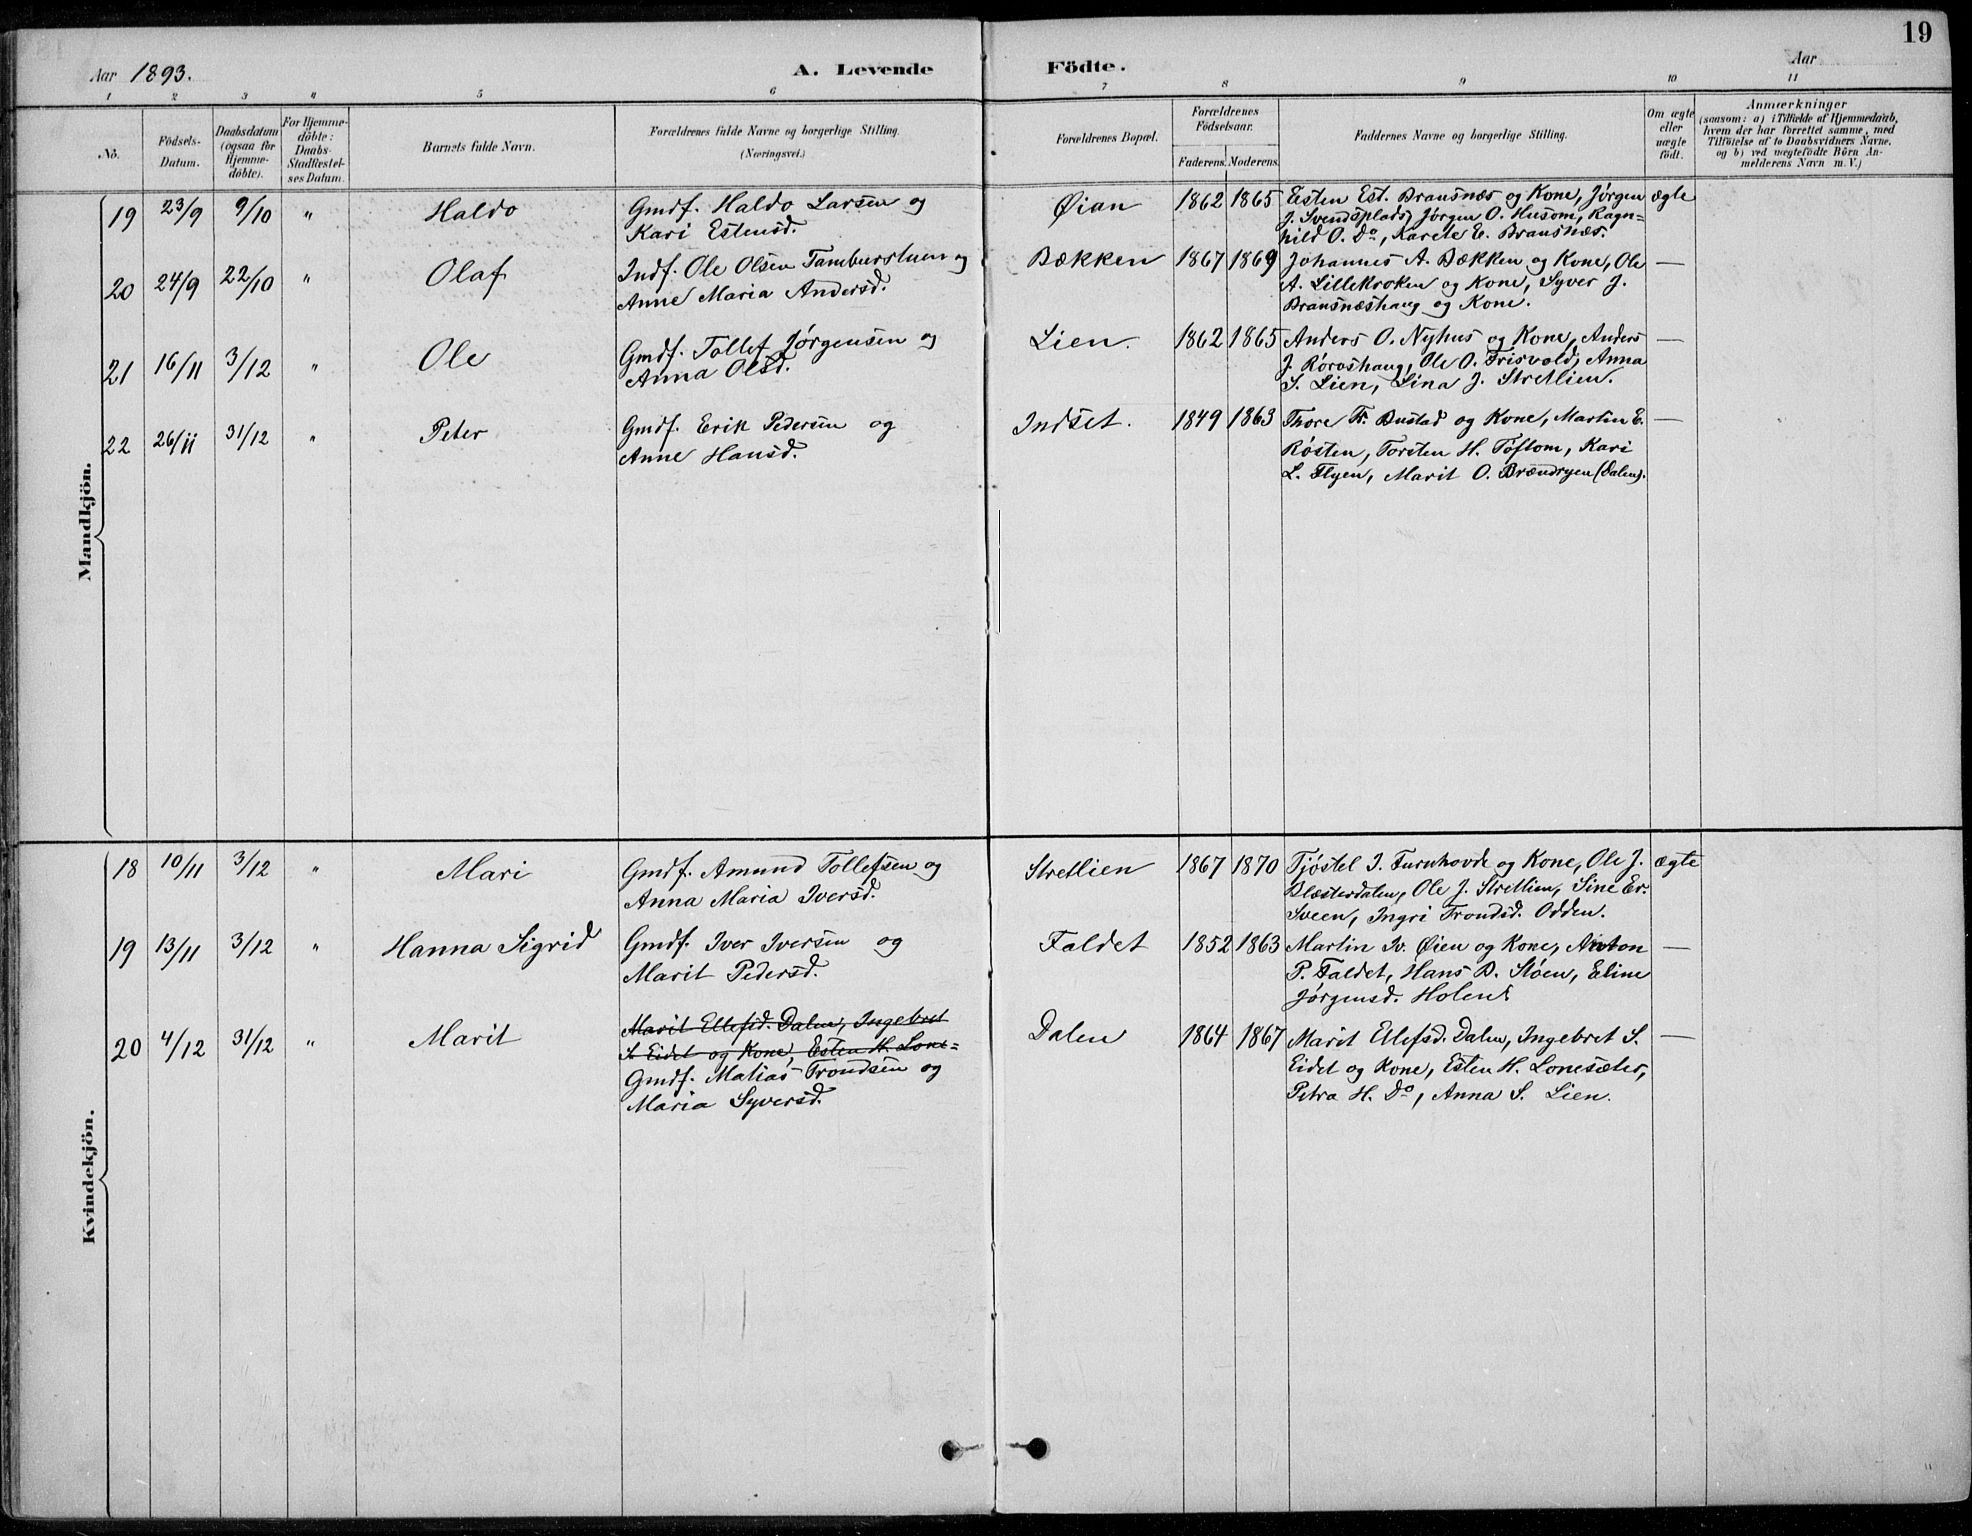 19
Aar 1893.
A. Levende Födte.
Aar
1 2 3 4 5 6 7 8 9 10 11
No.
Födsels-
Datum.
Daabsdatum
(ogsaa for
Hjemme-
döbte).
For Hjemme-
döbte:
Daabs-
Stadfestel-
ses Datum.
Barnets fulde Navn.
Forældrenes fulde Navne og borgerlige Stilling.
(Næringsvei.)
Forældrenes Bopæl.
Forældrenes
Födselsaar.
Faderens. Moderens.
Faddernes Navne og borgerlige Stilling.
Om ægte
eller
uægte
födt.
Anmærkninger
(saasom: a) i Tilfælde af Hjemmedaab,
hvem der har forrettet samme, med
Tilföielse af to Daabsvidners Navne,
og b) ved uægtefödte Börn An-
melderens Navn m. V.)
Mandkjön.
19 23/9 9/10 " Haldo
Gmdf. Haldo Larsen og
Kari Estensd.
Øian 1862 1865
Esten Est. Bransnæs og Kone, Jørgen
J. Svendsplads, Jørgen O. Husom, Ragn=
hild O. Do, Karete E. Bransnæs.
ægte
20 24/9 22/10 " Olaf
Indf. Ole Olsen Tamburstuen og
Anne Maria Andersd.
Bækken 1867 1869
Johannes A. Bækken og Kone, Ole
A. Lillekroken og Kone, Syver J.
Bransnæshaug og Kone.
—
21 16/11 3/12 " Ole
Gmdf. Tollef Jørgensen og
Anna Olsd.
Lien. 1862 1865
Anders O. Nyhus og Kone, Anders
J. Røroshaug, Ole O. Trisvold, Anna
S. Lien, Lina J. Stretlien.
—
22 26/11 31/12 " Peter
Gmdf. Erik Pedersen og
Anne Hansd.
Indset. 1849 1863
Thore Fr. Bustad og Kone, Martin E.
Røsten, Torsten H. Tøftom, Kari
L. Flyen, Marit O. Brændryen (Dalen).
—
Kvindekjön.
18 10/11 3/12 " Mari
Gmdf. Amund Tollefsen og
Anna Maria Iversd.
Stretlien 1867 1870
Tjøstel I. Turnhovde og Kone, Ole J.
Blæsterdalen, Ole J. Stretlien, Sine Er.
Sveen, Ingri Trondsd. Odden.
ægte
19 13/11 3/12 " Hanna Sigrid
Gmdf. Iver Iversen og
Marit Pedersd.
Faldet 1852 1863
Martin Iv. Øien og Kone, Anton
P. Faldet, Hans B. Støen, Eline
Jørgensd. Holen.
—
20 4/12 31/12 " Marit
Marit Ellefsd. Dalen, Ingebret
S. Eidet og Kone, Esten H. Lone=
Gmdf. Matias Trondsen og
Maria Syversd.
Dalen 1864 1867
Marit Ellefsd. Dalen, Ingebret S.
Eidet og Kone, Esten H. Lonesæter,
Petra H. Do, Anna S. Lien.
—